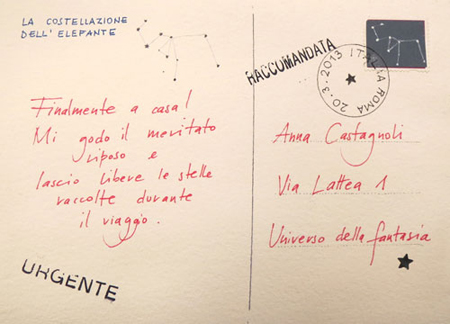 LA COSTELLAZIONE
DELL'ELEFANTE
Finalmente a casa!
Mi godo il meritato
riposo e
lascio libere le stelle
raccolte durante
il viaggio.
URGENTE
RACCOMANDATA
20.3.2013 ITALIA ROMA
Anna Castagnoli
Via Lattea 1
Universo della fantasia